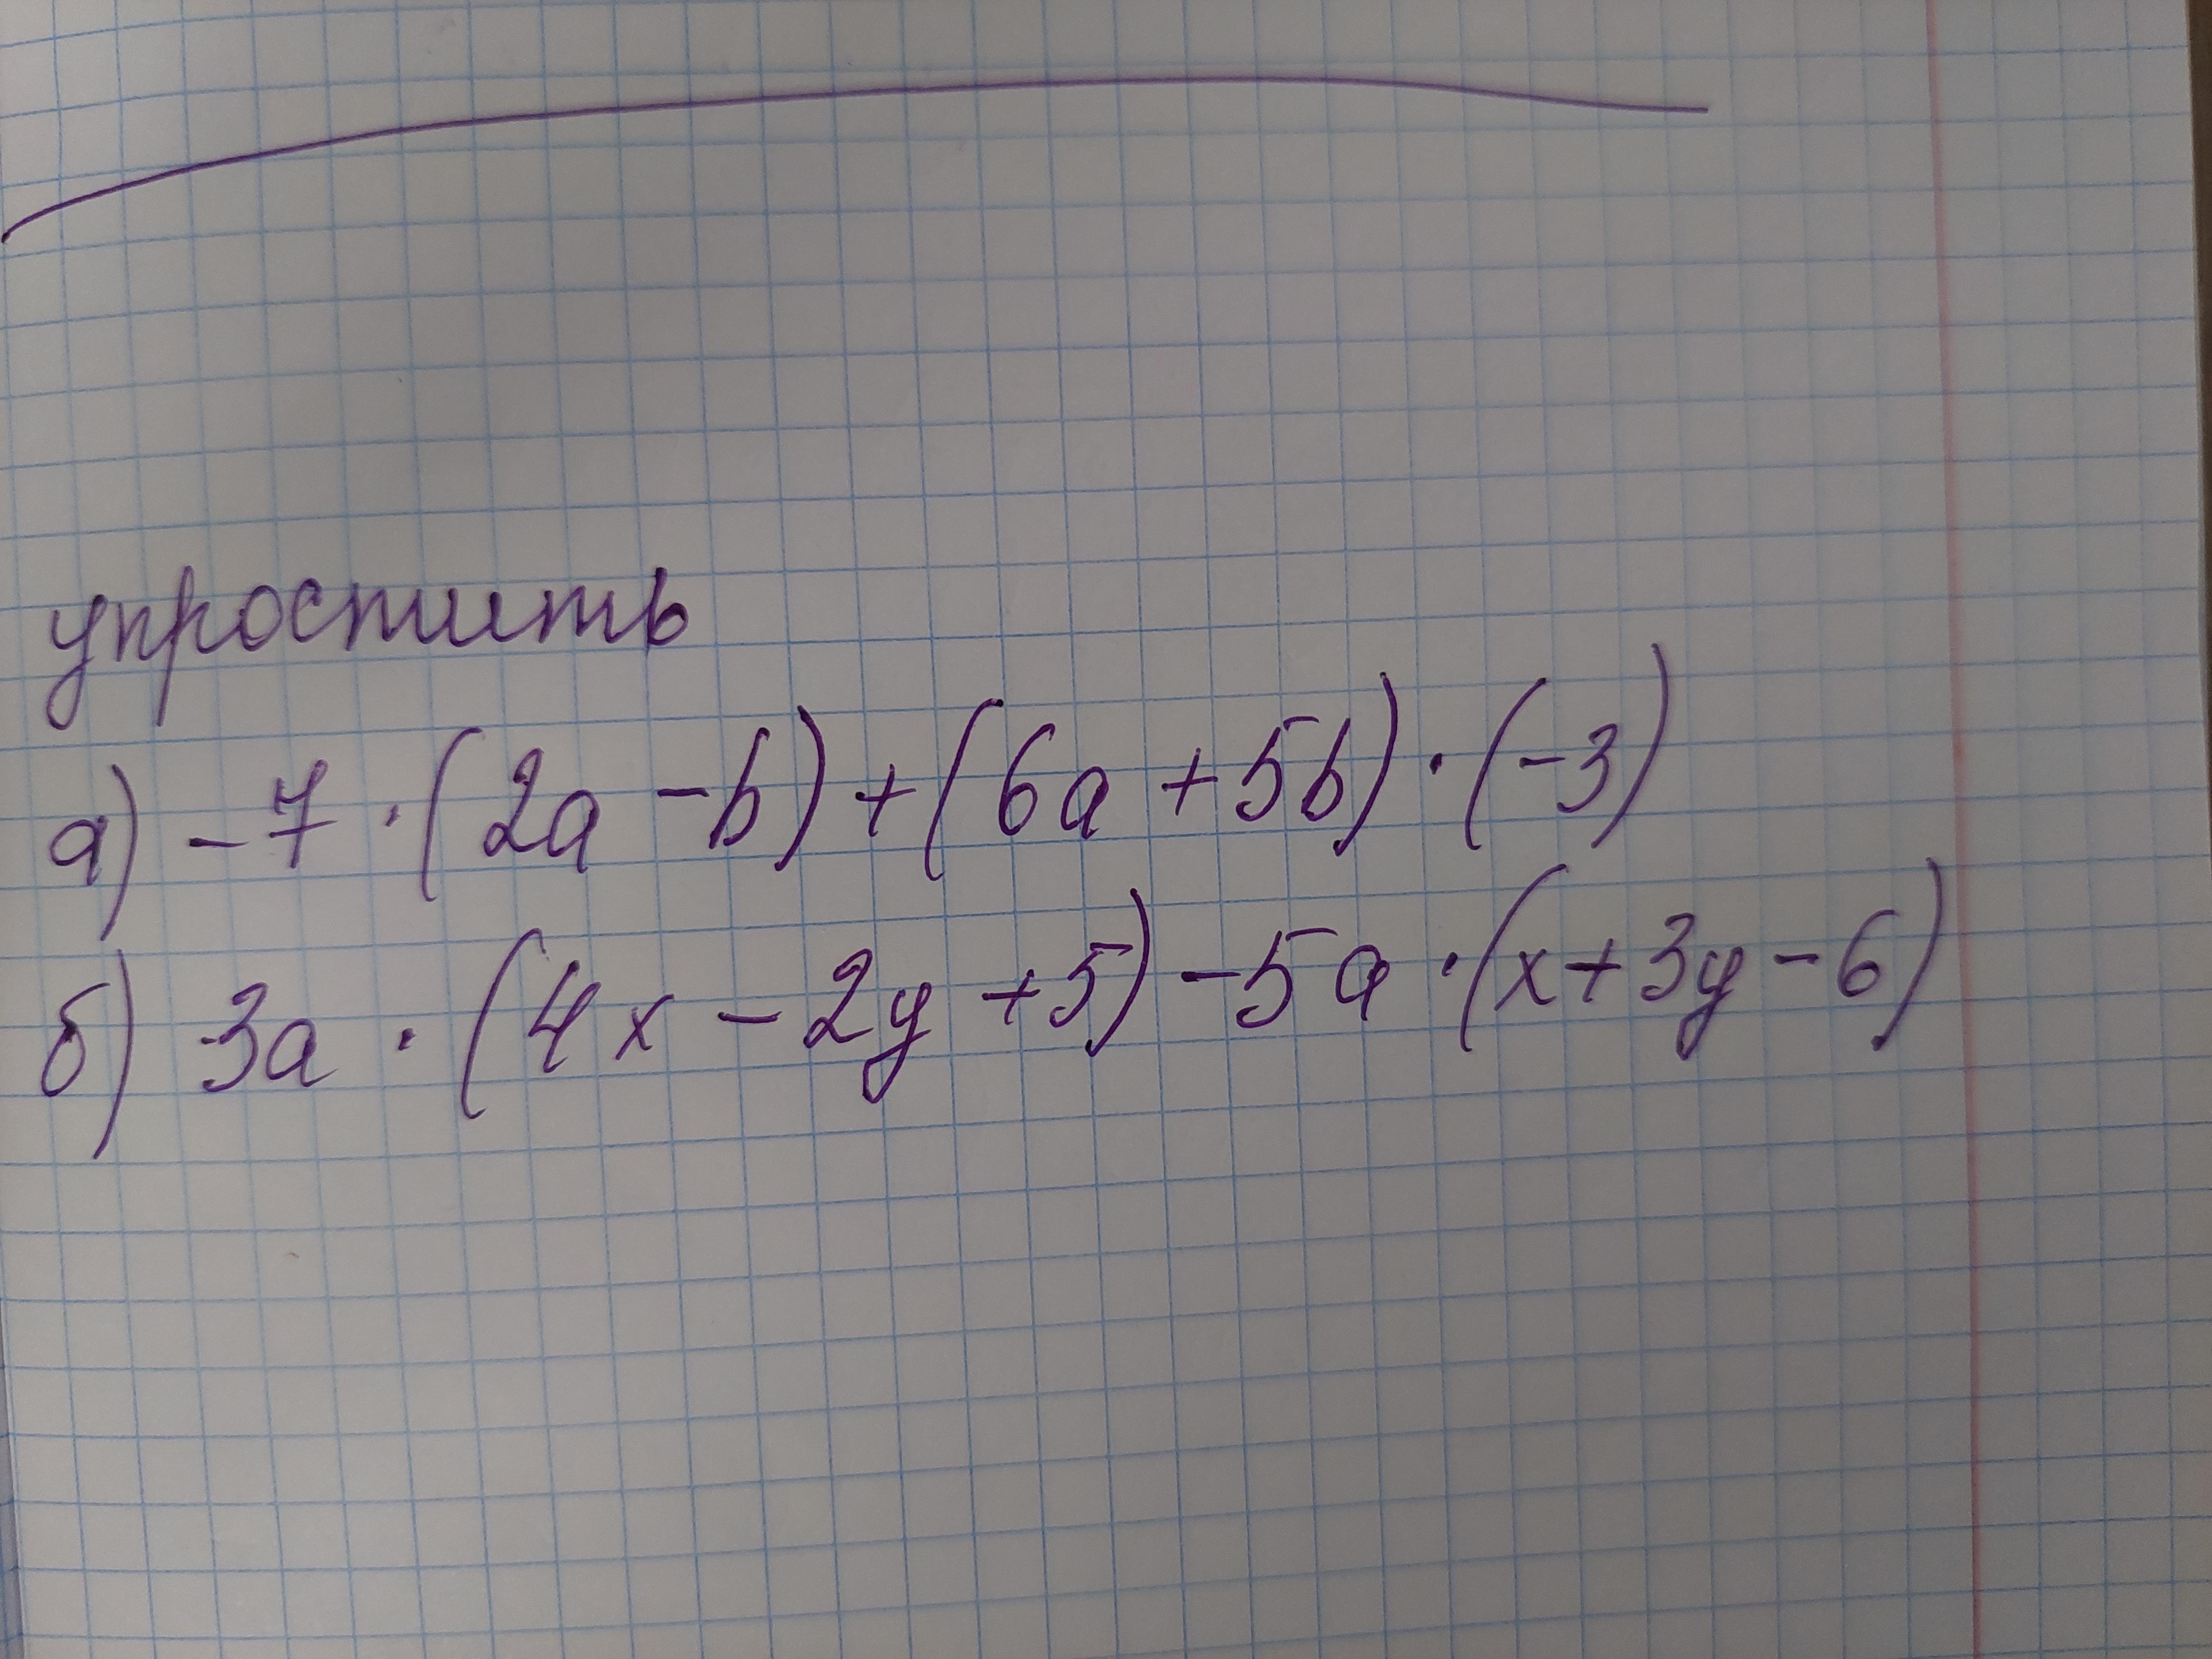 упростить
а) -7 · (2a - b) + (6a + 5b) · (-3)
б) 3a · (4x - 2y + 5) - 5a · (x + 3y - 6)